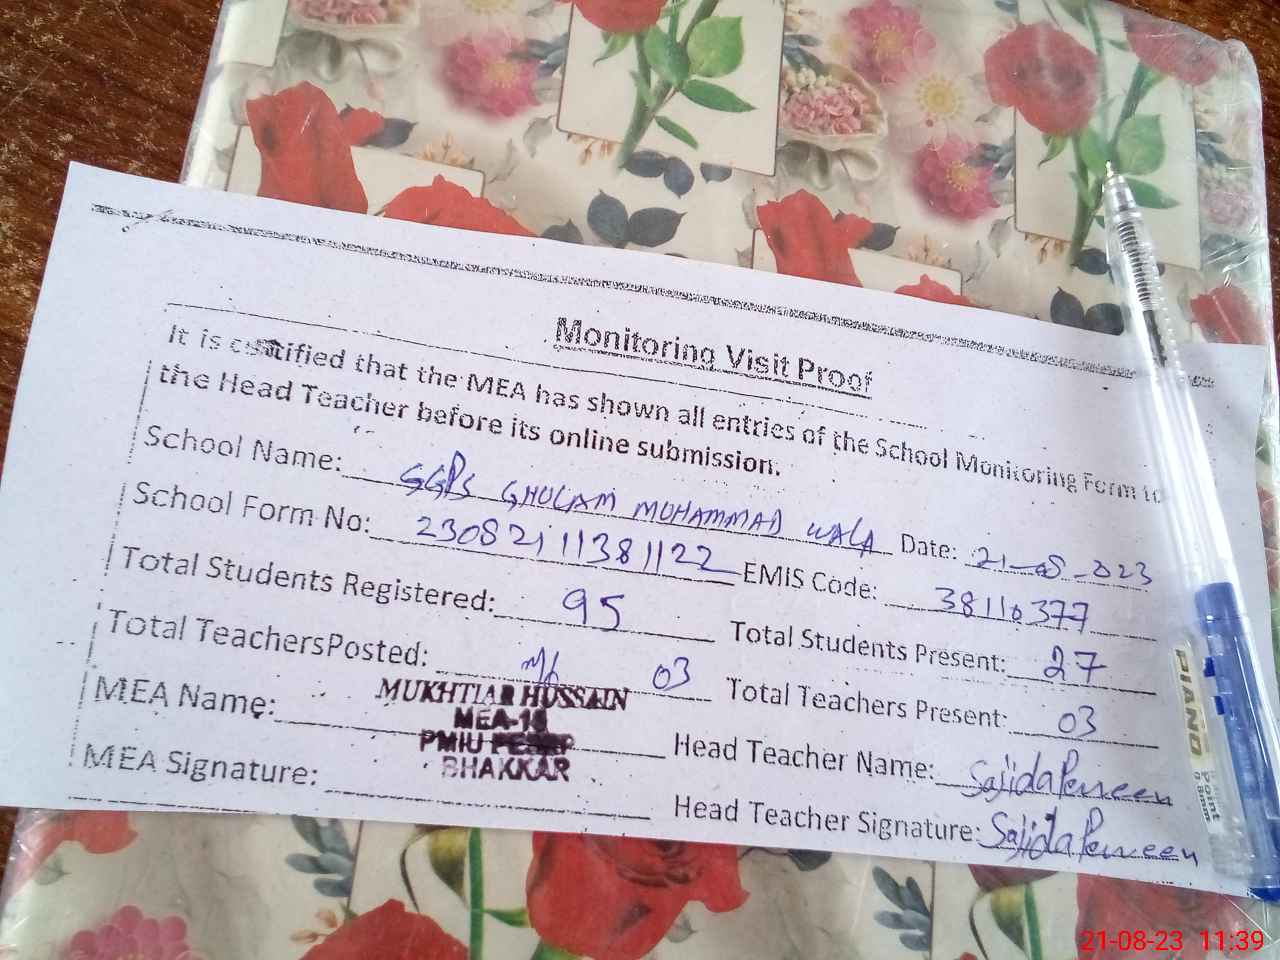 Monitoring Visit Proof
It is certified that the MEA has shown all entries of the School Monitoring Form to
the Head Teacher before its online submission.
School Name: GGPS GHULAM MUHAMMAD WALA Date: 21-08-2023
School Form No: 23082111381122 EMIS Code: 38110377
Total Students Registered: 95 Total Students Present: 27
Total TeachersPosted: 03 Total Teachers Present: 03
MEA Name: MUKHTIAR HUSSAIN Head Teacher Name: Sajida Perveen
MEA-18
PMIU PESRP
BHAKKAR
MEA Signature: Head Teacher Signature: Sajida Perveen
PIANO
Point
0.8mm
21-08-23 11:39